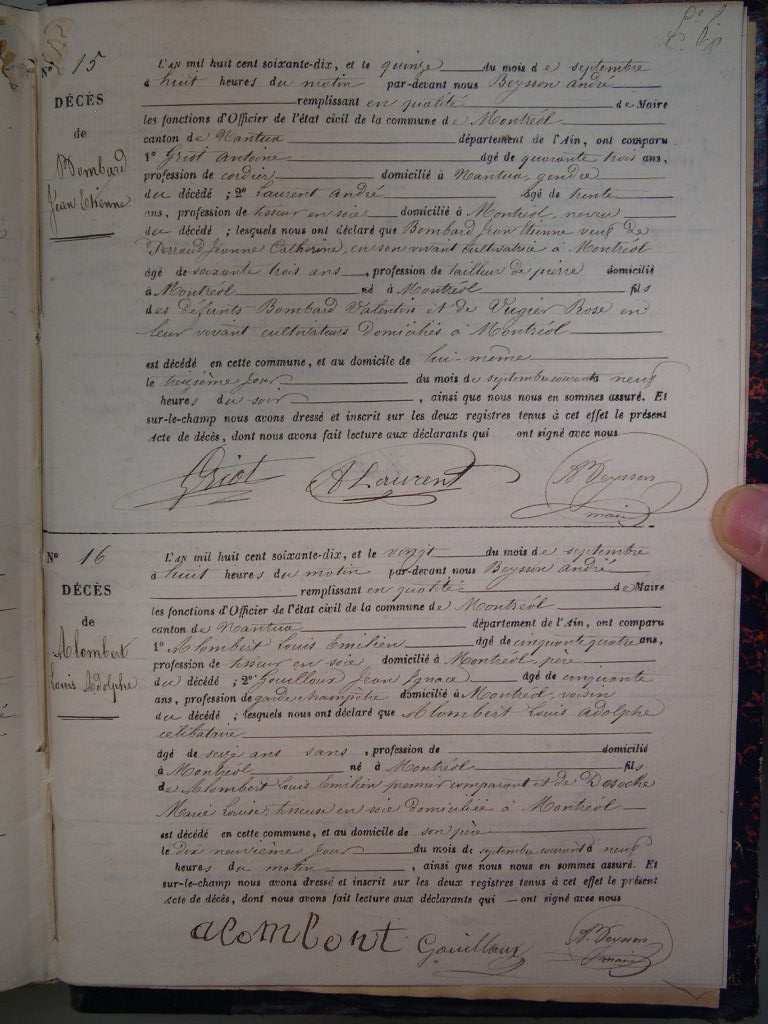 N° 15
DÉCÈS
de
Bombard
Jean Etienne
L'AN mil huit cent soixante-dix, et le quinze du mois de septembre
à huit heures du matin par-devant nous Beysson André
remplissant en qualité de Maire
les fonctions d'Officier de l'état civil de la commune de Montréal
canton de Nantua département de l'Ain, ont comparu
1° Griot Antoine âgé de quarante trois ans,
profession de cordier domicilié à Nantua, gendre
du décédé ; 2° Laurent André âgé de trente
ans, profession de tisseur en soie domicilié à Montréal, neveu
du décédé ; lesquels nous ont déclaré que Bombard Jean Etienne veuf de
Perraud Jeanne Catherine, en son vivant cultivatrice à Montréal
âgé de soixante trois ans, profession de tailleur de pierre domicilié
à Montréal né à Montréal fils
des défunts Bombard Valentin et de Vugier Rose en
leur vivant cultivateurs domiciliés à Montréal
est décédé en cette commune, et au domicile de lui-même
le jour du mois de septembre courant à neuf
heures du soir, ainsi que nous nous en sommes assuré. Et
sur-le-champ nous avons dressé et inscrit sur les deux registres tenus à cet effet le présent
Acte de décès, dont nous avons fait lecture aux déclarants qui ont signé avec nous
Griot A Laurent A Beysson
maire
N° 16
DÉCÈS
de
Alombert
Louis Adolphe
L'AN mil huit cent soixante-dix, et le vingt du mois de septembre
à huit heures du matin par-devant nous Beysson André
remplissant en qualité de Maire
les fonctions d'Officier de l'état civil de la commune de Montréal
canton de Nantua département de l'Ain, ont comparu
1° Alombert Louis Emilien âgé de cinquante quatre ans,
profession de tisseur en soie domicilié à Montréal, père
du décédé ; 2° Gouilloux Jean Ignace âgé de cinquante
ans, profession de garde champêtre domicilié à Montréal, voisin
du décédé ; lesquels nous ont déclaré que Alombert Louis adolphe
célibataire
âgé de seize ans sans, profession de domicilié
à Montréal né à Montréal fils
de Alombert Louis Emilien premier comparant et de Desoche
Marie Louise, tisseuse en soie domiciliée à Montréal
est décédé en cette commune, et au domicile de son père
le dix neuvième jour du mois de septembre courant à neuf
heures du matin, ainsi que nous nous en sommes assuré. Et
sur-le-champ nous avons dressé et inscrit sur les deux registres tenus à cet effet le présent
Acte de décès, dont nous avons fait lecture aux déclarants qui ont signé avec nous
alombert Gouilloux A Beysson
maire